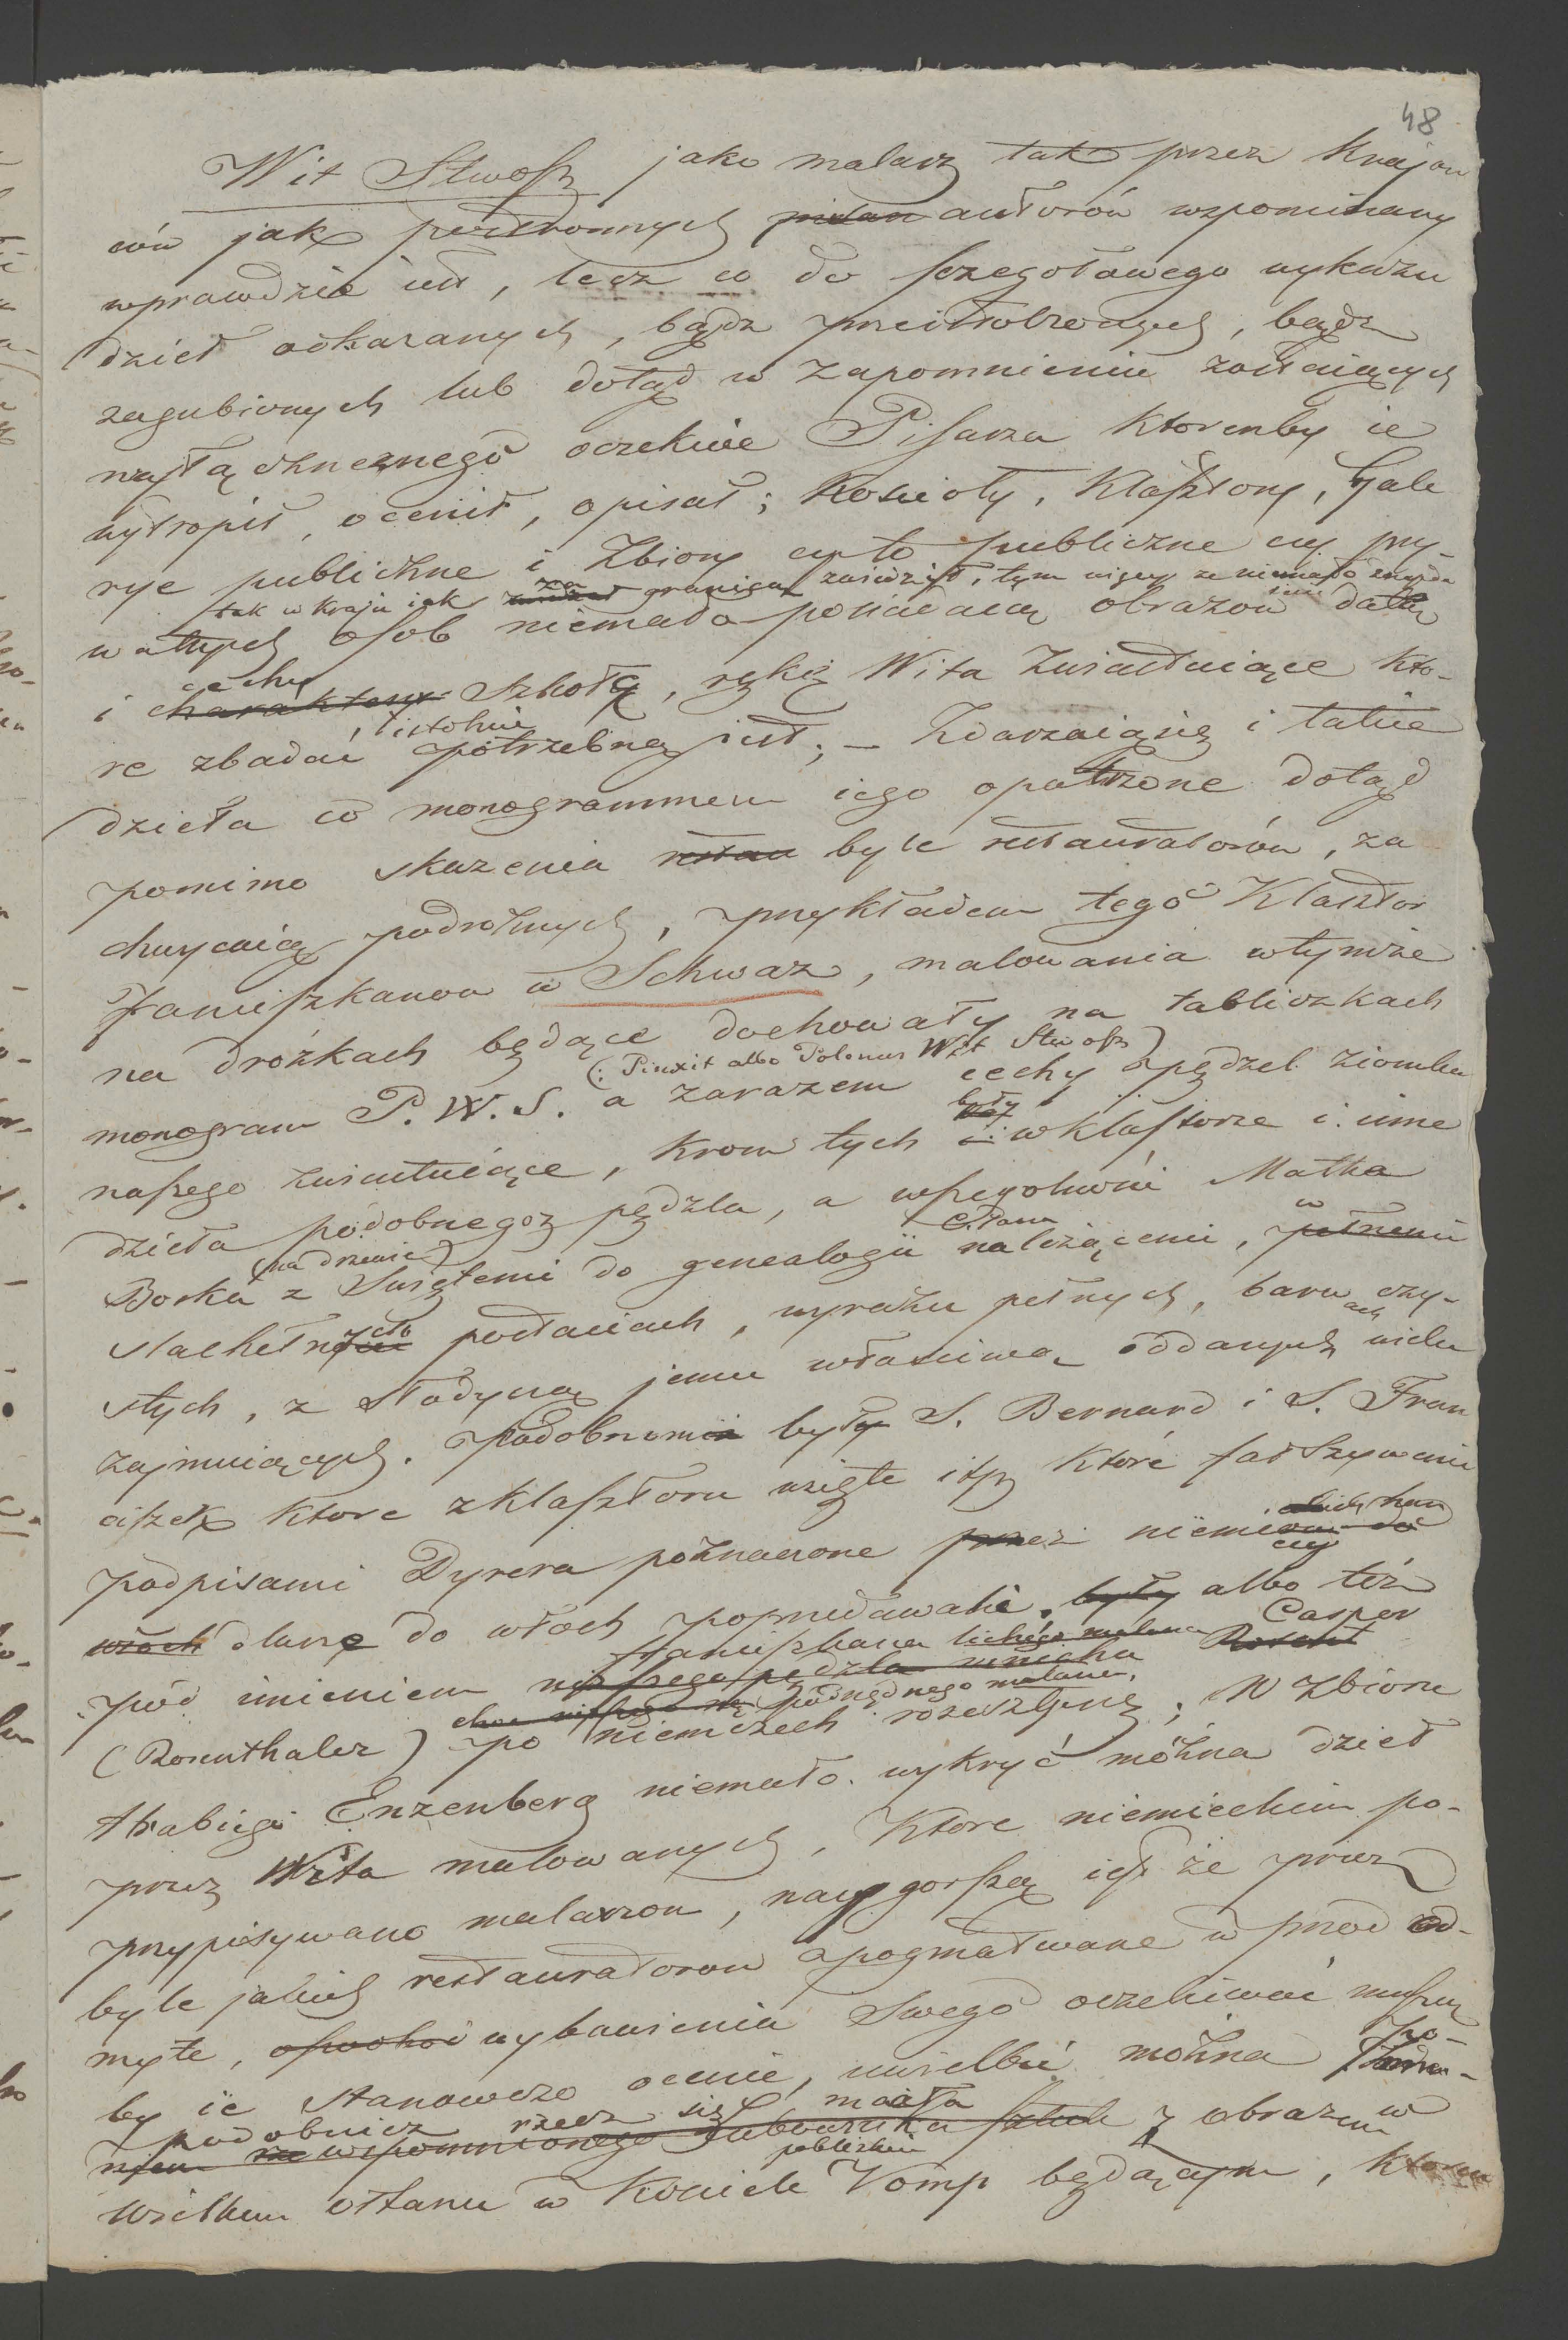 48
Wit Stwosz jako malarz tak przez Krajow
ców jak postronnych autorów wspominany
wprawdzie iest, lecz co do szczegołowego wykazu
dzieł okazanych, bądz przeistoczonych, bądz
zagubionych lub dotąd w zapomnieniu zostaiących
oczekiwie Pisarza ktorenby ie
wytropił, ocenił, opisał; Koscioły, Klasztory, Gale
rye publiczne i Zbiory czy to publiczne czy pry-
tak w kraju iak za granicą zwiedzić, tym więcy ze niemało znayda
watnych osob niemało posiadaią obrazow datą
cechy
i charaktery Szkołę, rękę Wita Zwiastuiące kto-
istotnie
re zbadać potrzebną jest; – Zdarzaią się i takie
dzieła co monogrammem iego opatrzone dotąd
pomimo skazenia byle restauratorów, za
chwycaią podrożnych, przykładem tego Klasztor
Franciszkanow w Schwaz, malowania wtymże
na drożkach będące dochowały na tabliczkach
(: Pinxit albo Polonus Wit Stwosz)
monogram P. W. S. a zarazem cechy pędzel ziomka
były
naszego zwiastuiące, Krom tych i w klasztorze i inne
dzieła podobnegoż pędzla, a wszczególnosci Matka
(na drzewie)
Boska z Swiętemi do genealogii należącemi, w
Slachetnych postaciach, wyrazu pełnych, barw czy-
stych, z słodyczą jemu własciwą oddanych wielce
zajmuiących. Podobnemi były S. Bernard i S. Fran
ciszek ktore z klasztoru wzięte itp. Które fałszywemi
podpisami Dyrera poznaczone przez niemieckich han
dlarze do włoch poprzedawali, były albo też
Franciszkana lichego malarza Casper
pod imieniem
podrzędnego malarza,
(Rosenthaler) po niemczech rozeszły się; W Zbiorze
Hrabiego Enzenberg niemało wykryć można dzieł
przez Wita malowanych, Ktore niemieckim po-
przypisywano malarzom, naygorszą iest że przez
byle jakich restauratorow apogmatwane w przod od-
myte, wybawienia Swego oczekiwać muszą
by ie stanowczo ocenić, uwielbić można po-
podobnież rzecz się miała
wspomnionego z obrazem w
pobliskim
wielkim ołtarzu w Kosciele Vomp będącym, ktorem